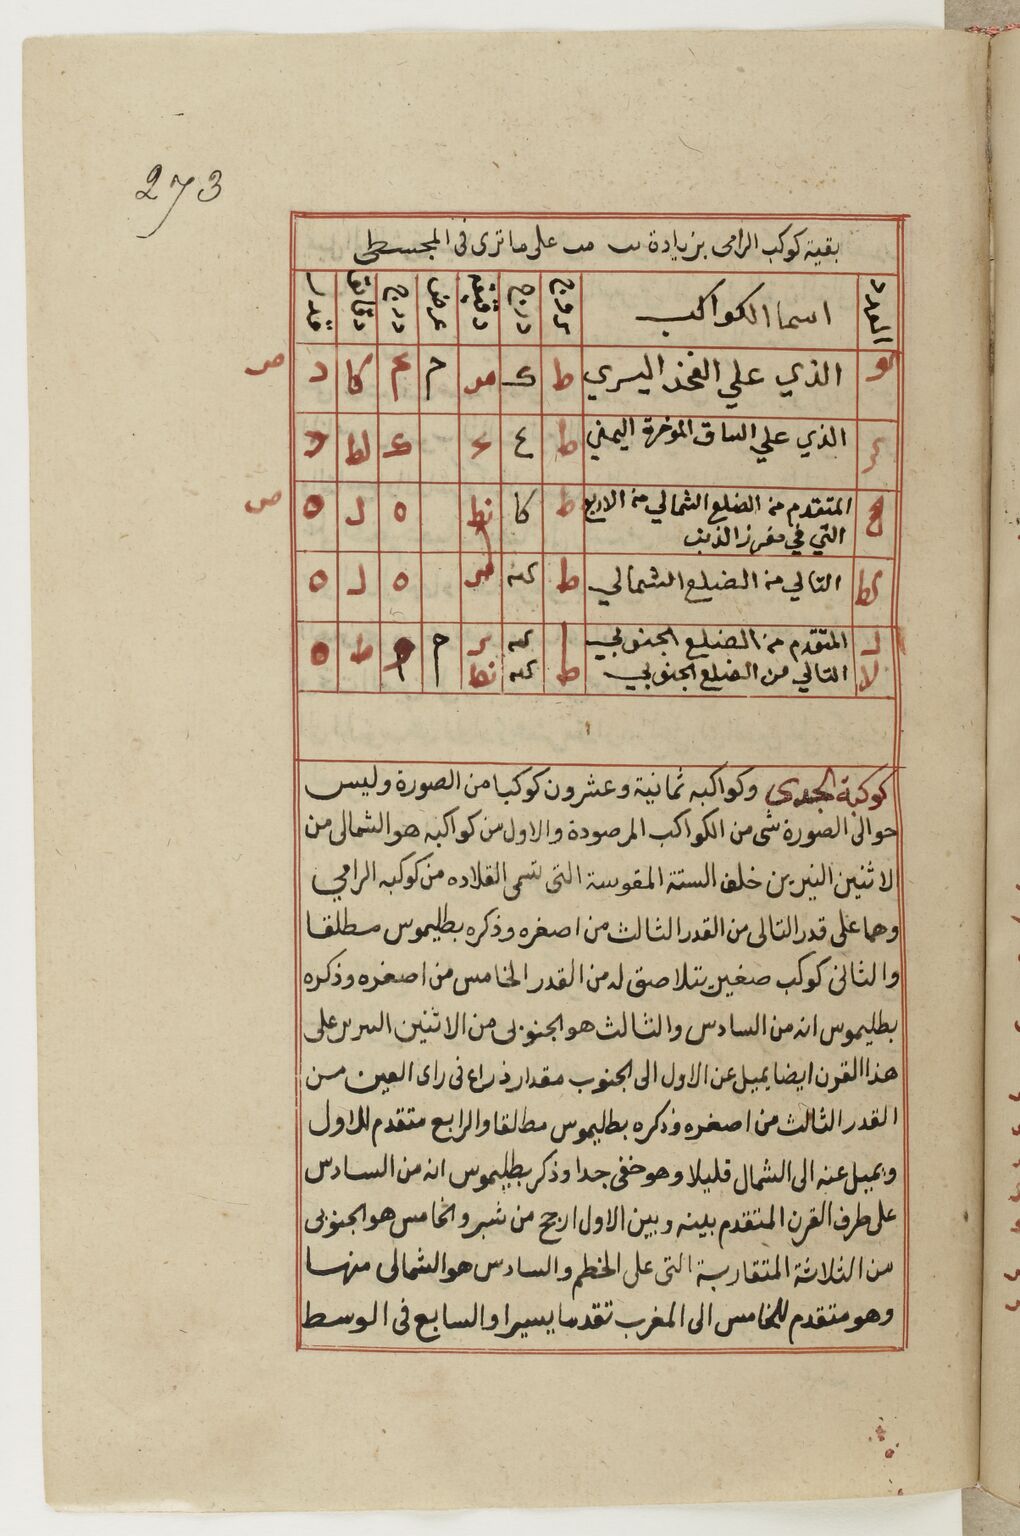 273
بقية كوكب الرامى بزيادة على ما ترى فى المجسطى
العدد اسما الكواكب بروج درج دقيقه عرض درج دقائق قدر
الذي علي الفخذ اليسري ط مر كا د
الذي علي الساق الموخرة اليمني ط لط د
المتقدم من الضلع الشمالي من الاربع ط كا نط ه ل ه
التي في مغرز الذنب
كط التالي من الضلع الشمالي ط كه ه ل ه
ل المتقدم من الضلع الجنوبي كه
لا التالي من الضلع الجنوبي ط كه نط
كوكبة الجدى وكواكبه ثمانية وعشرون كوكبا من الصورة وليس
حوالى الصورة شى من الكواكب المرصودة والاول من كواكبه هو الشمالى من
الاثنين النيرين خلف الستة المقوسة التى تسمى القلاده من كوكبه الرامي
وهما على قدر التالى من القدر الثالث من اصغره وذكره بطليموس مطلقا
والثانى كوكب صغير يتلاصق له من القدر الخامس من اصغره وذكره
بطليموس انه من السادس والثالث هو الجنوبى من الاثنين على
هذا القرن ايضا يميل عن الاول الى الجنوب مقدار ذراع فى راى العين من
القدر الثالث من اصغره وذكره بطليموس مطالقا والرابع متقدم للاول
ويميل عنه الى الشمال قليلا وهو خفى جدا وذكر بطليموس انه من السادس
على طرف القرن المتقدم بينه وبين الاول ارجح من شبر والخامس هو الجنوبى
من الثلاثة المتقاربة التى على الخطم والسادس هو الشمالى منها
وهو متقدم للخامس الى المغرب تقدما يسيرا والسابع فى الوسط